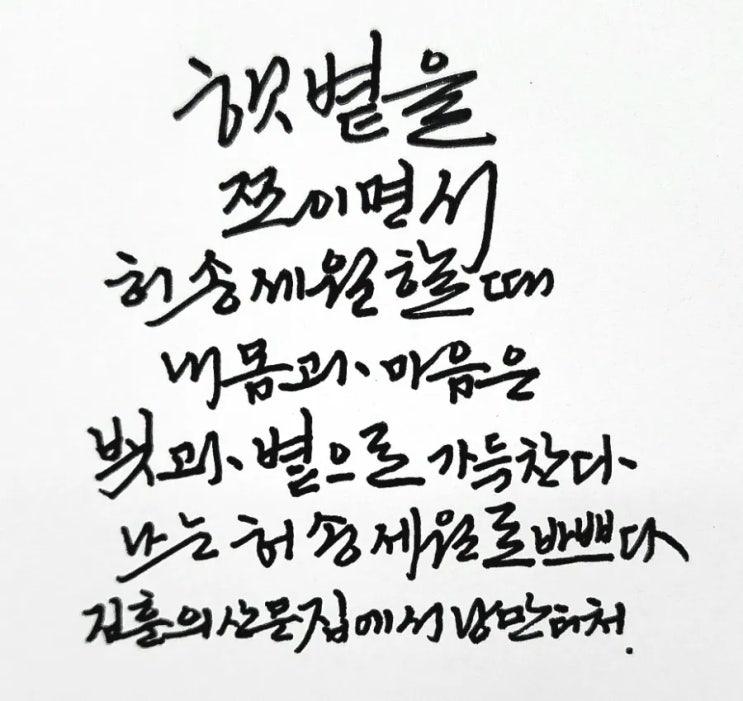 햇볕을
쪼이면서
허송세월할때
내몸과 마음은
빛과 볕으로 가득찬다
나는 허송세월로 바쁘다
김훈의 산문집에서 낭만